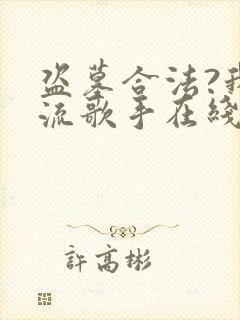 盗墓合法?我
流歌手在线
許高彬